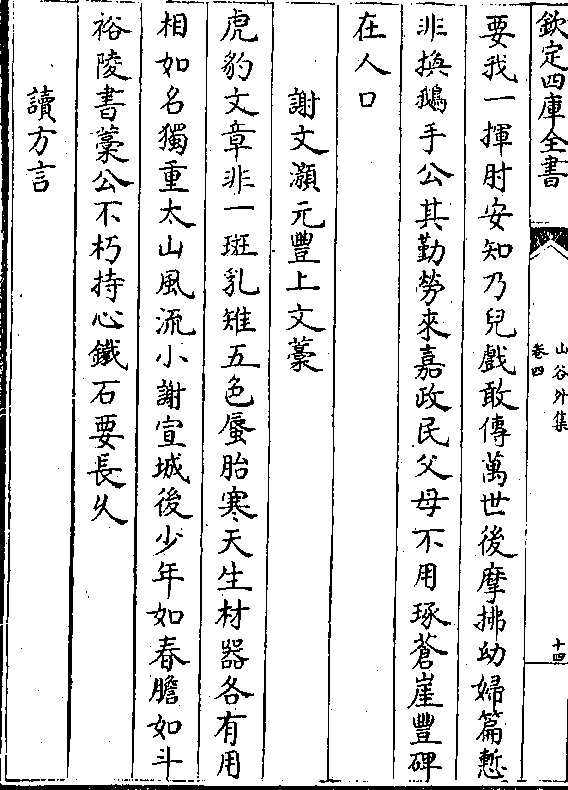 欽定四庫全書
山谷外集
卷四
十四
要我一揮肘安知乃兒戲敢傳萬世後摩拂幼婦篇慙
非換鵝手公其勤勞來嘉政民父母不用琢蒼崖豐碑
在人口
謝文灝元豐上文藁
虎豹文章非一斑乳雉五色蜃胎寒天生材器各有用
相如名獨重太山風流小謝宣城後少年如春膽如斗
裕陵書藁公不朽持心鐵石要長久
讀方言